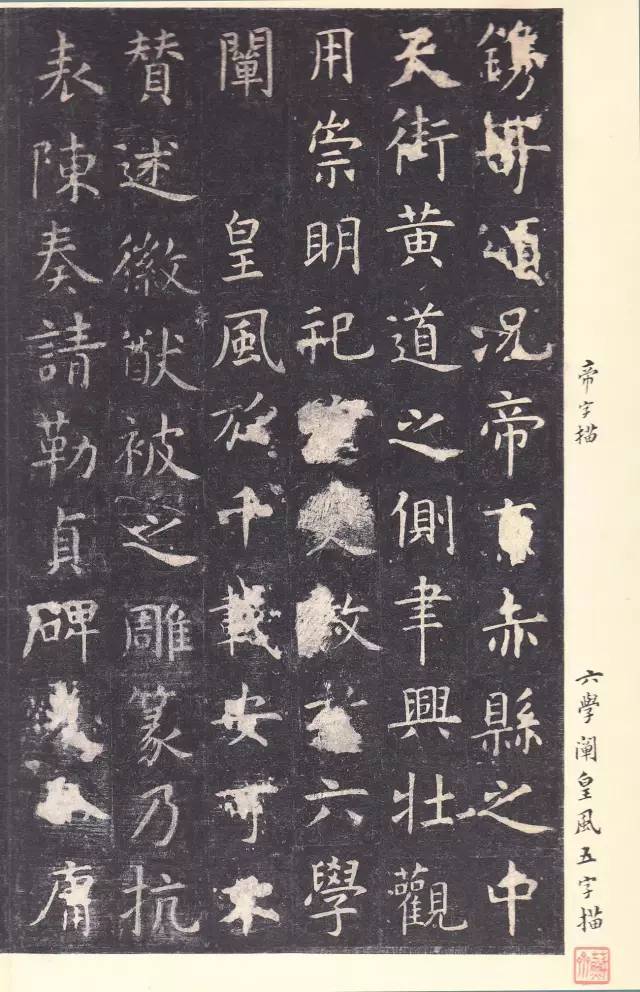 帝字描
六學闡皇風五字描
鐫哥頌況帝京赤縣之中
天街黃道之側聿興壯觀
用崇明祀宣文教於六學
闡 皇風於千載安可不
贊述徽猷被之雕篆乃抗
表陳奏請勒貞碑爰命庸